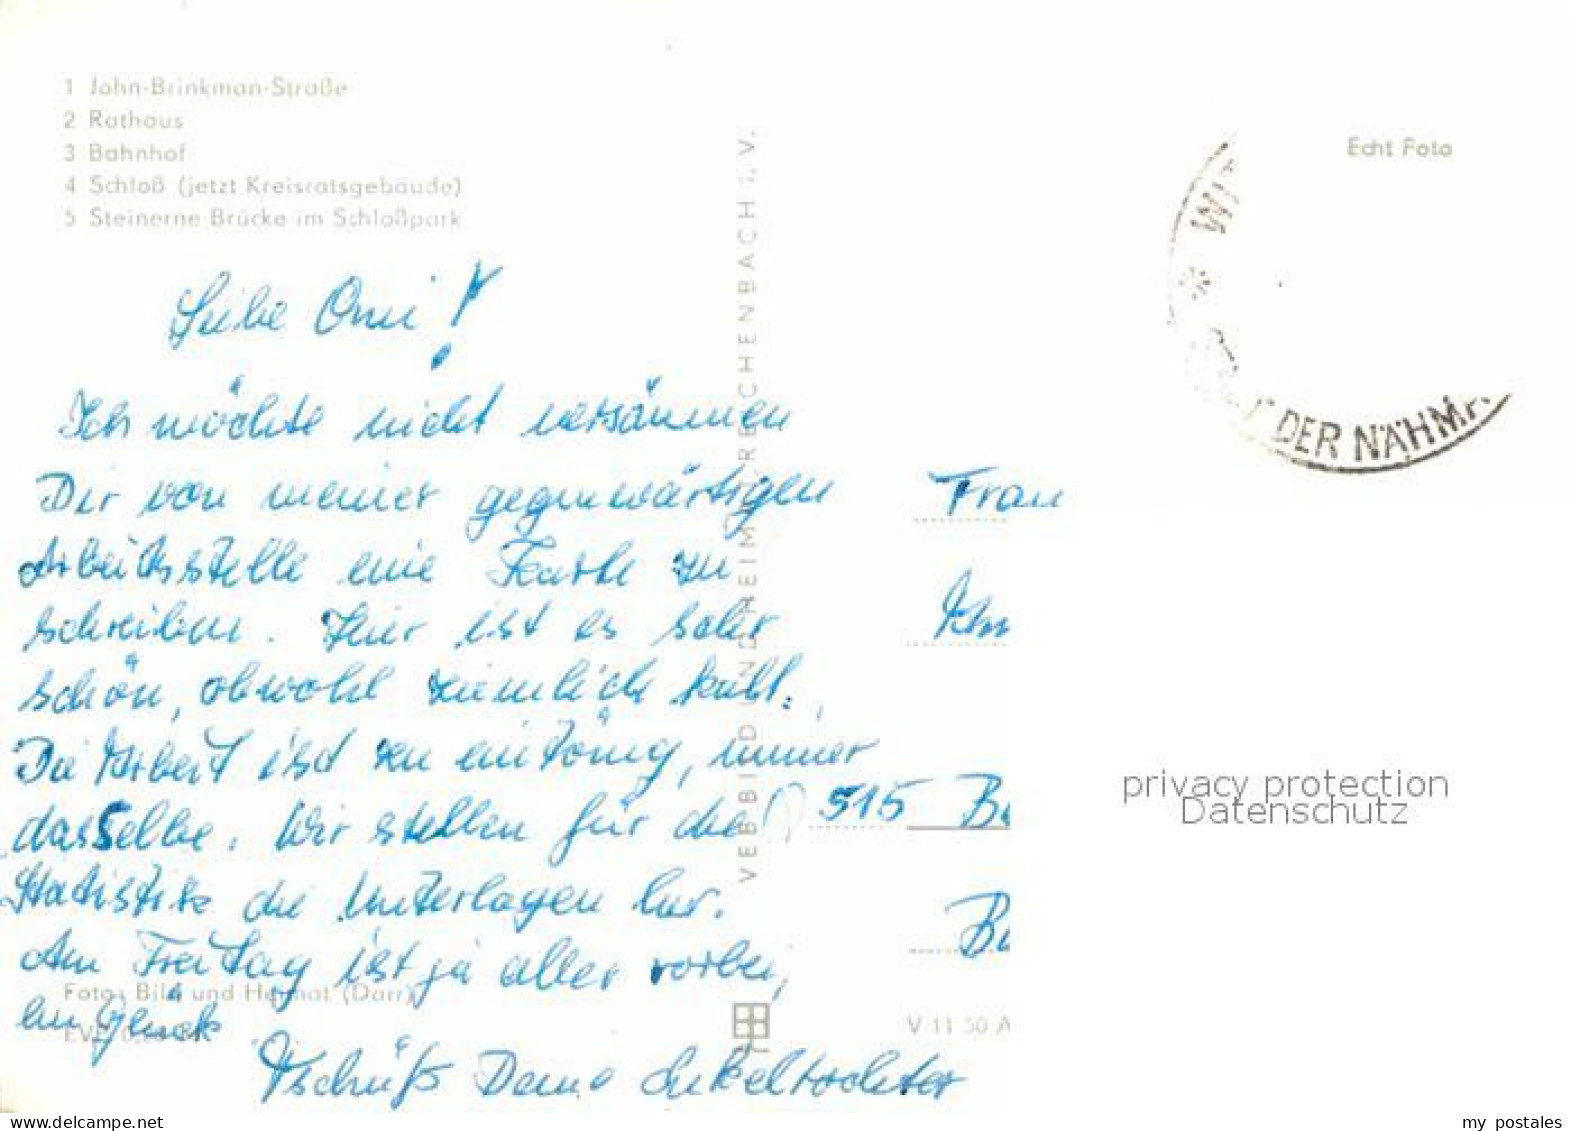 1 John-Brinkman-Straße
2 Rathaus
3 Bahnhof
4 Schloß (jetzt Kreisratsgebäude)
5 Steinerne Brücke im Schloßpark
Echt Foto
DER NÄHMA
Liebe Omi!
Ich möchte nicht versäumen
Dir von meiner gegenwärtigen
Arbeitsstelle eine Karte zu
schreiben. Hier ist es sehr
schön, obwohl ziemlich kalt.
Die Arbeit ist zu eintönig, immer
dasselbe. Wir stellen für die
Statistik die Unterlagen her.
Am Freitag ist ja alles vorbei,
zum Glück
Tschüß Deine Enkeltochter
VEB BILD UND HEIMAT REICHENBACH I. V.
Frau
515 B
Foto: Bild und Heimat (Darr)
V 11 50 A
privacy protection
Datenschutz
www.delcampe.net
my_postales